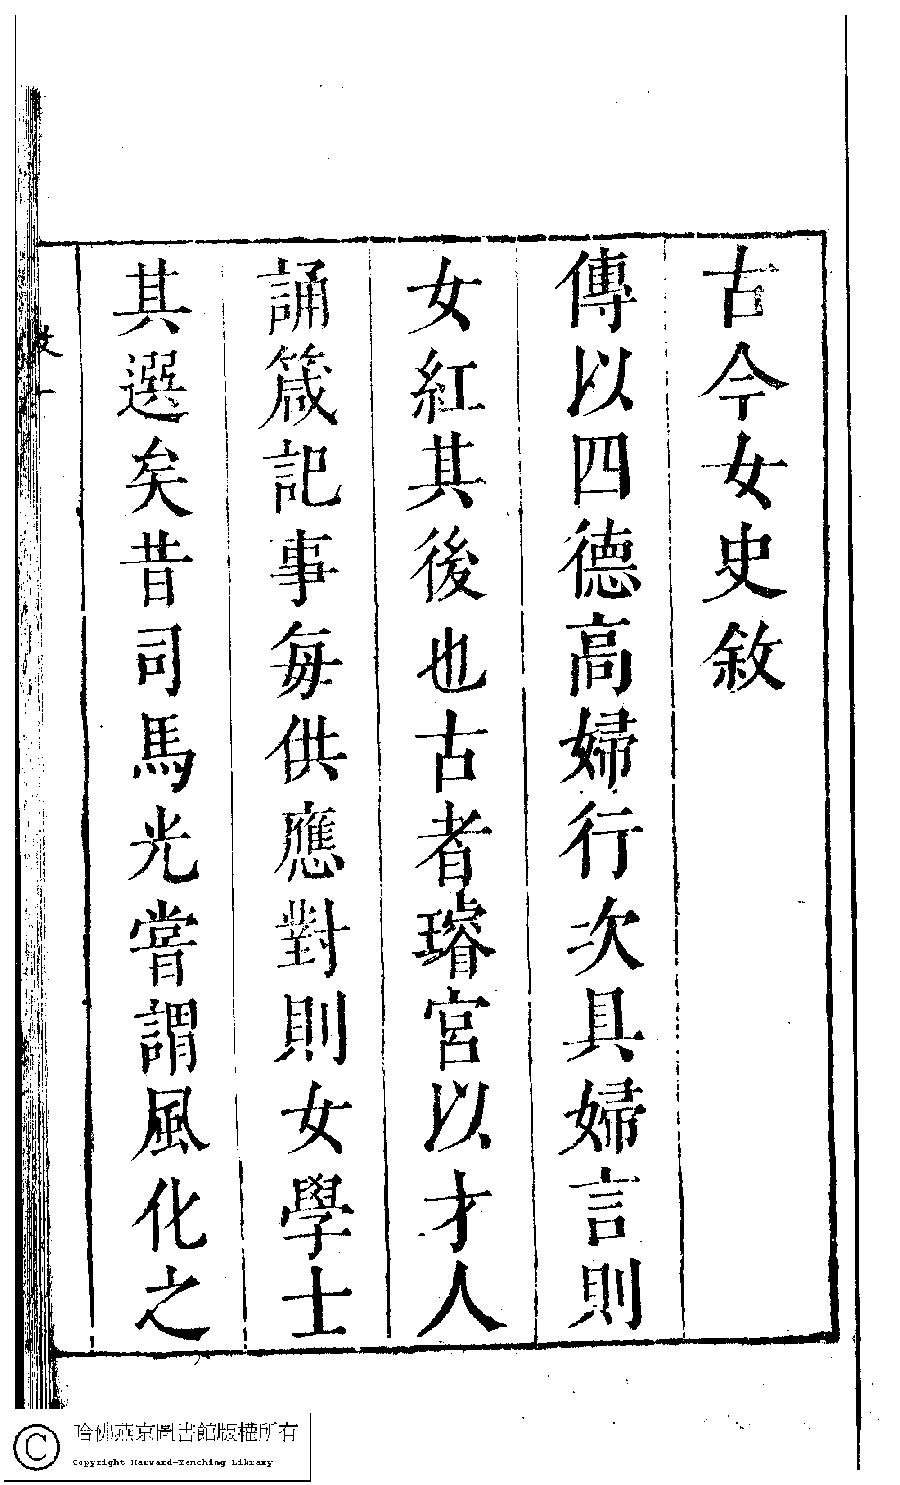 古今女史敘
傳以四德高婦行次具婦言則
女紅其後也古者璿宮以才人
誦箴記事每供應對則女學士
其選矣昔司馬光嘗謂風化之
哈佛燕京圖書館版權所有
Copyright Harvard-Yenching Library